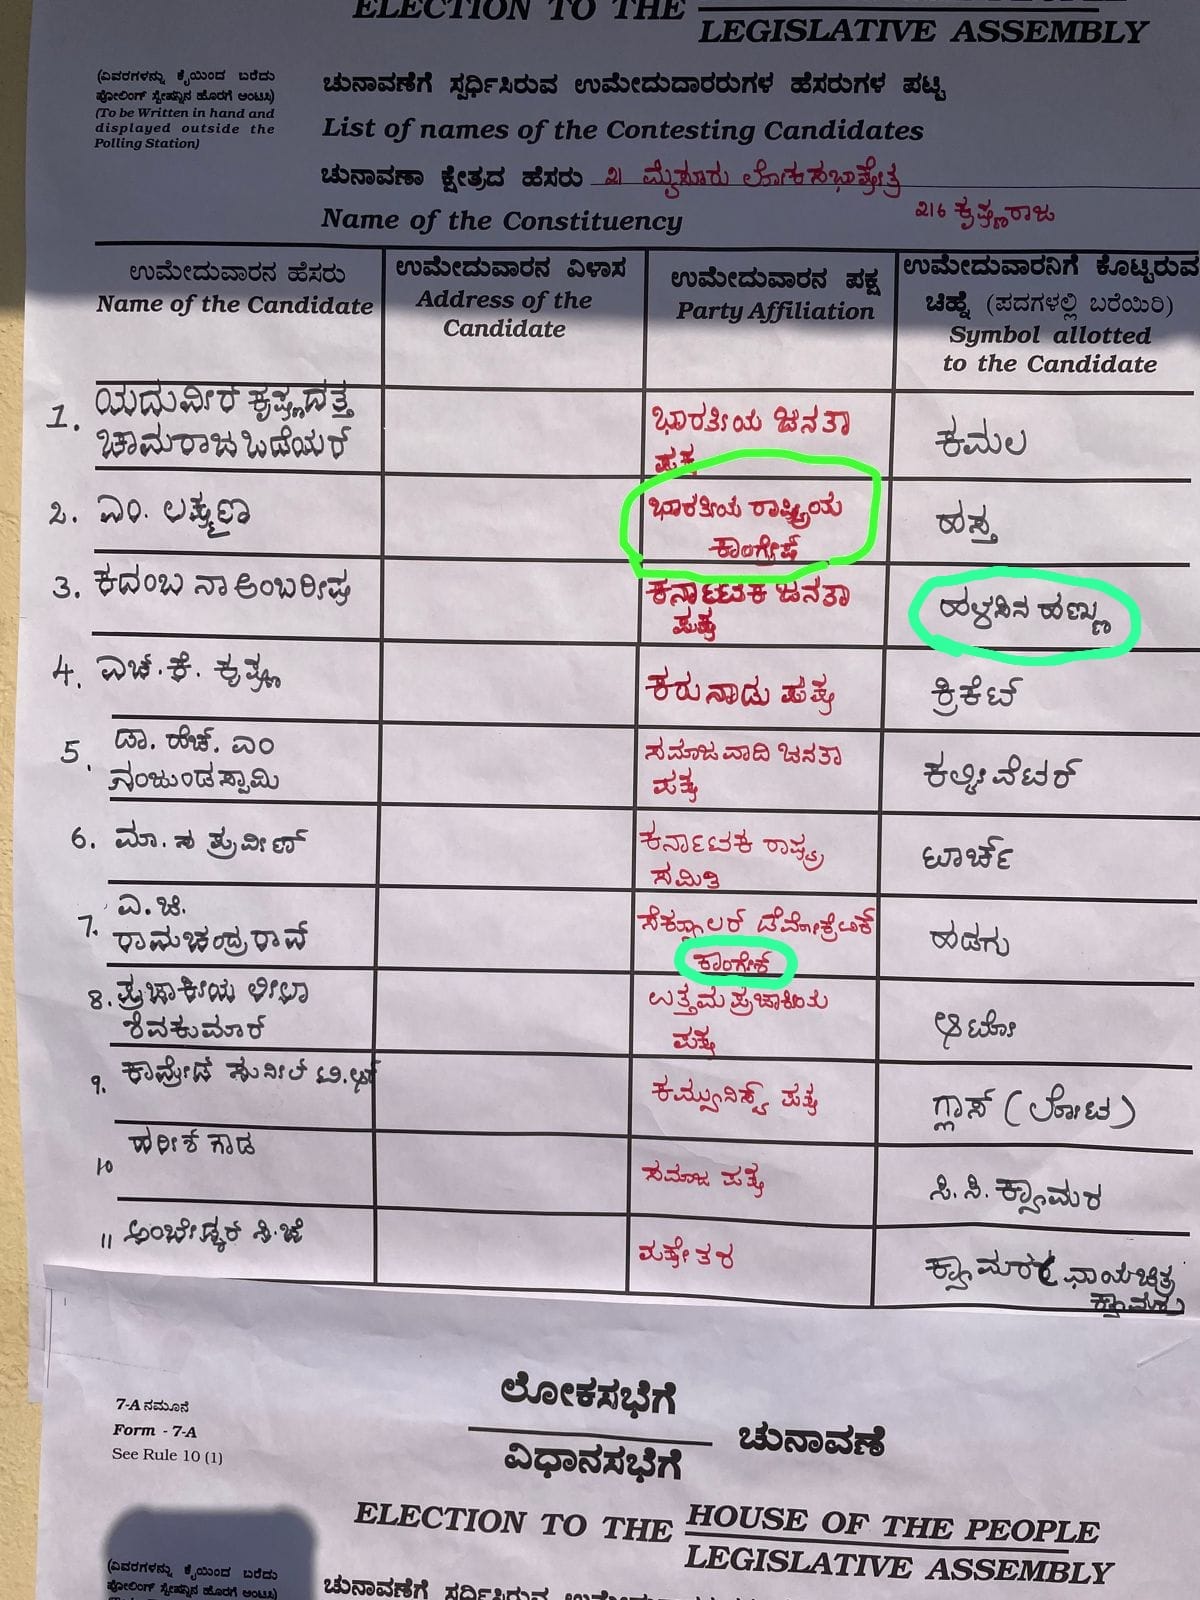 ELECTION TO THE
LEGISLATIVE ASSEMBLY
(ವಿವರಗಳನ್ನು ಕೈಯಿಂದ ಬರೆದು
ಪೋಲಿಂಗ್ ಸ್ಟೇಷನ್ನಿನ ಹೊರಗೆ ಅಂಟಿಸಿ)
(To be Written in hand and
displayed outside the
Polling Station)
ಚುನಾವಣೆಗೆ ಸ್ಪರ್ಧಿಸಿರುವ ಉಮೇದುದಾರರುಗಳ ಹೆಸರುಗಳ ಪಟ್ಟಿ
List of names of the Contesting Candidates
ಚುನಾವಣಾ ಕ್ಷೇತ್ರದ ಹೆಸರು 21 ಮೈಸೂರು ಲೋಕಸಭಾಕ್ಷೇತ್ರ
Name of the Constituency
216 ಕೃಷ್ಣರಾಜ
ಉಮೇದುವಾರನ ಹೆಸರು
Name of the Candidate
ಉಮೇದುವಾರನ ವಿಳಾಸ
Address of the
Candidate
ಉಮೇದುವಾರನ ಪಕ್ಷ
Party Affiliation
ಉಮೇದುವಾರನಿಗೆ ಕೊಟ್ಟಿರುವ
ಚಿಹ್ನೆ (ಪದಗಳಲ್ಲಿ ಬರೆಯಿರಿ)
Symbol allotted
to the Candidate
1. ಯದುವೀರ ಕೃಷ್ಣದತ್ತ
ಚಾಮರಾಜ ಒಡೆಯರ್
ಭಾರತೀಯ ಜನತಾ
ಪಕ್ಷ
ಕಮಲ
2. ಎಂ. ಲಕ್ಷ್ಮಣ
ಭಾರತೀಯ ರಾಷ್ಟ್ರೀಯ
ಕಾಂಗ್ರೇಸ್
ಹಸ್ತ
3. ಕದಂಬ ನಾ ಅಂಬರೀಷ
ಕರ್ನಾಟಕ ಜನತಾ
ಪಕ್ಷ
ಹಳಸಿನ ಹಣ್ಣು
4. ಎಚ್.ಕೆ. ಕೃಷ್ಣ
ಕರುನಾಡು ಪಕ್ಷ
ಕ್ರಿಕೆಟ್
5. ಡಾ. ಹೆಚ್. ಎಂ
ನಂಜುಂಡಸ್ವಾಮಿ
ಸಮಾಜವಾದಿ ಜನತಾ
ಪಕ್ಷ
ಕಲ್ಟಿವೆಟರ್
6. ಮಾ. ಸ ಪ್ರವೀಣ್
ಕರ್ನಾಟಕ ರಾಷ್ಟ್ರ
ಸಮಿತಿ
ಟಾರ್ಚ್
7. ಎ.ಜಿ.
ರಾಮಚಂದ್ರರಾವ್
ಸೆಕ್ಯೂಲರ್ ಡೆಮೋಕ್ರೆಟಿಕ್
ಕಾಂಗ್ರೇಸ್
ಹಡಗು
8. ಪ್ರಜಾಕೀಯ ಲೀಲಾ
ಶಿವಕುಮಾರ್
ಉತ್ತಮ ಪ್ರಜಾಕೀಯ
ಪಕ್ಷ
ಆಟೋ
9. ಕಾಮ್ರೇಡ್ ಸುನೀಲ್ ಟಿ.ಆರ್
ಕಮ್ಯುನಿಸ್ಟ್ ಪಕ್ಷ
ಗ್ಲಾಸ್ (ಲೋಟ)
10 ಹರೀಶ್ ಗೌಡ
ಸಮಾಜ ಪಕ್ಷ
ಸಿ. ಸಿ. ಕ್ಯಾಮರ
11 ಅಂಬೇಡ್ಕರ್ ಸಿ.ಜೆ
ಪಕ್ಷೇತರ
ಕ್ಯಾಮರ (ಛಾಯಚಿತ್ರ
ಕ್ಯಾಮರ)
7-A ನಮೂನೆ
Form - 7-A
See Rule 10 (1)
ಲೋಕಸಭೆಗೆ
ಚುನಾವಣೆ
ವಿಧಾನಸಭೆಗೆ
ELECTION TO THE HOUSE OF THE PEOPLE
LEGISLATIVE ASSEMBLY
(ವಿವರಗಳನ್ನು ಕೈಯಿಂದ ಬರೆದು
ಪೋಲಿಂಗ್ ಸ್ಟೇಷನ್ನಿನ ಹೊರಗೆ ಅಂಟಿಸಿ)
ಚುನಾವಣೆಗೆ ಸ್ಪರ್ಧಿಸಿರುವ